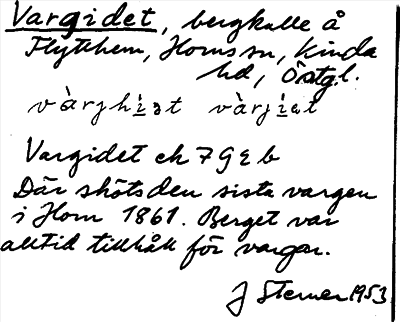 Vargidet, bergkulle å
Flytthem, Horns sn, Kinda
hd, Östgl.
vàrghi̲et vàrgi̲et
Vargidet ek 7 G 2 b
Där sköts den sista vargen
i Horn 1861. Berget var
alltid tillhåll för vargar.
J Sterner 1953